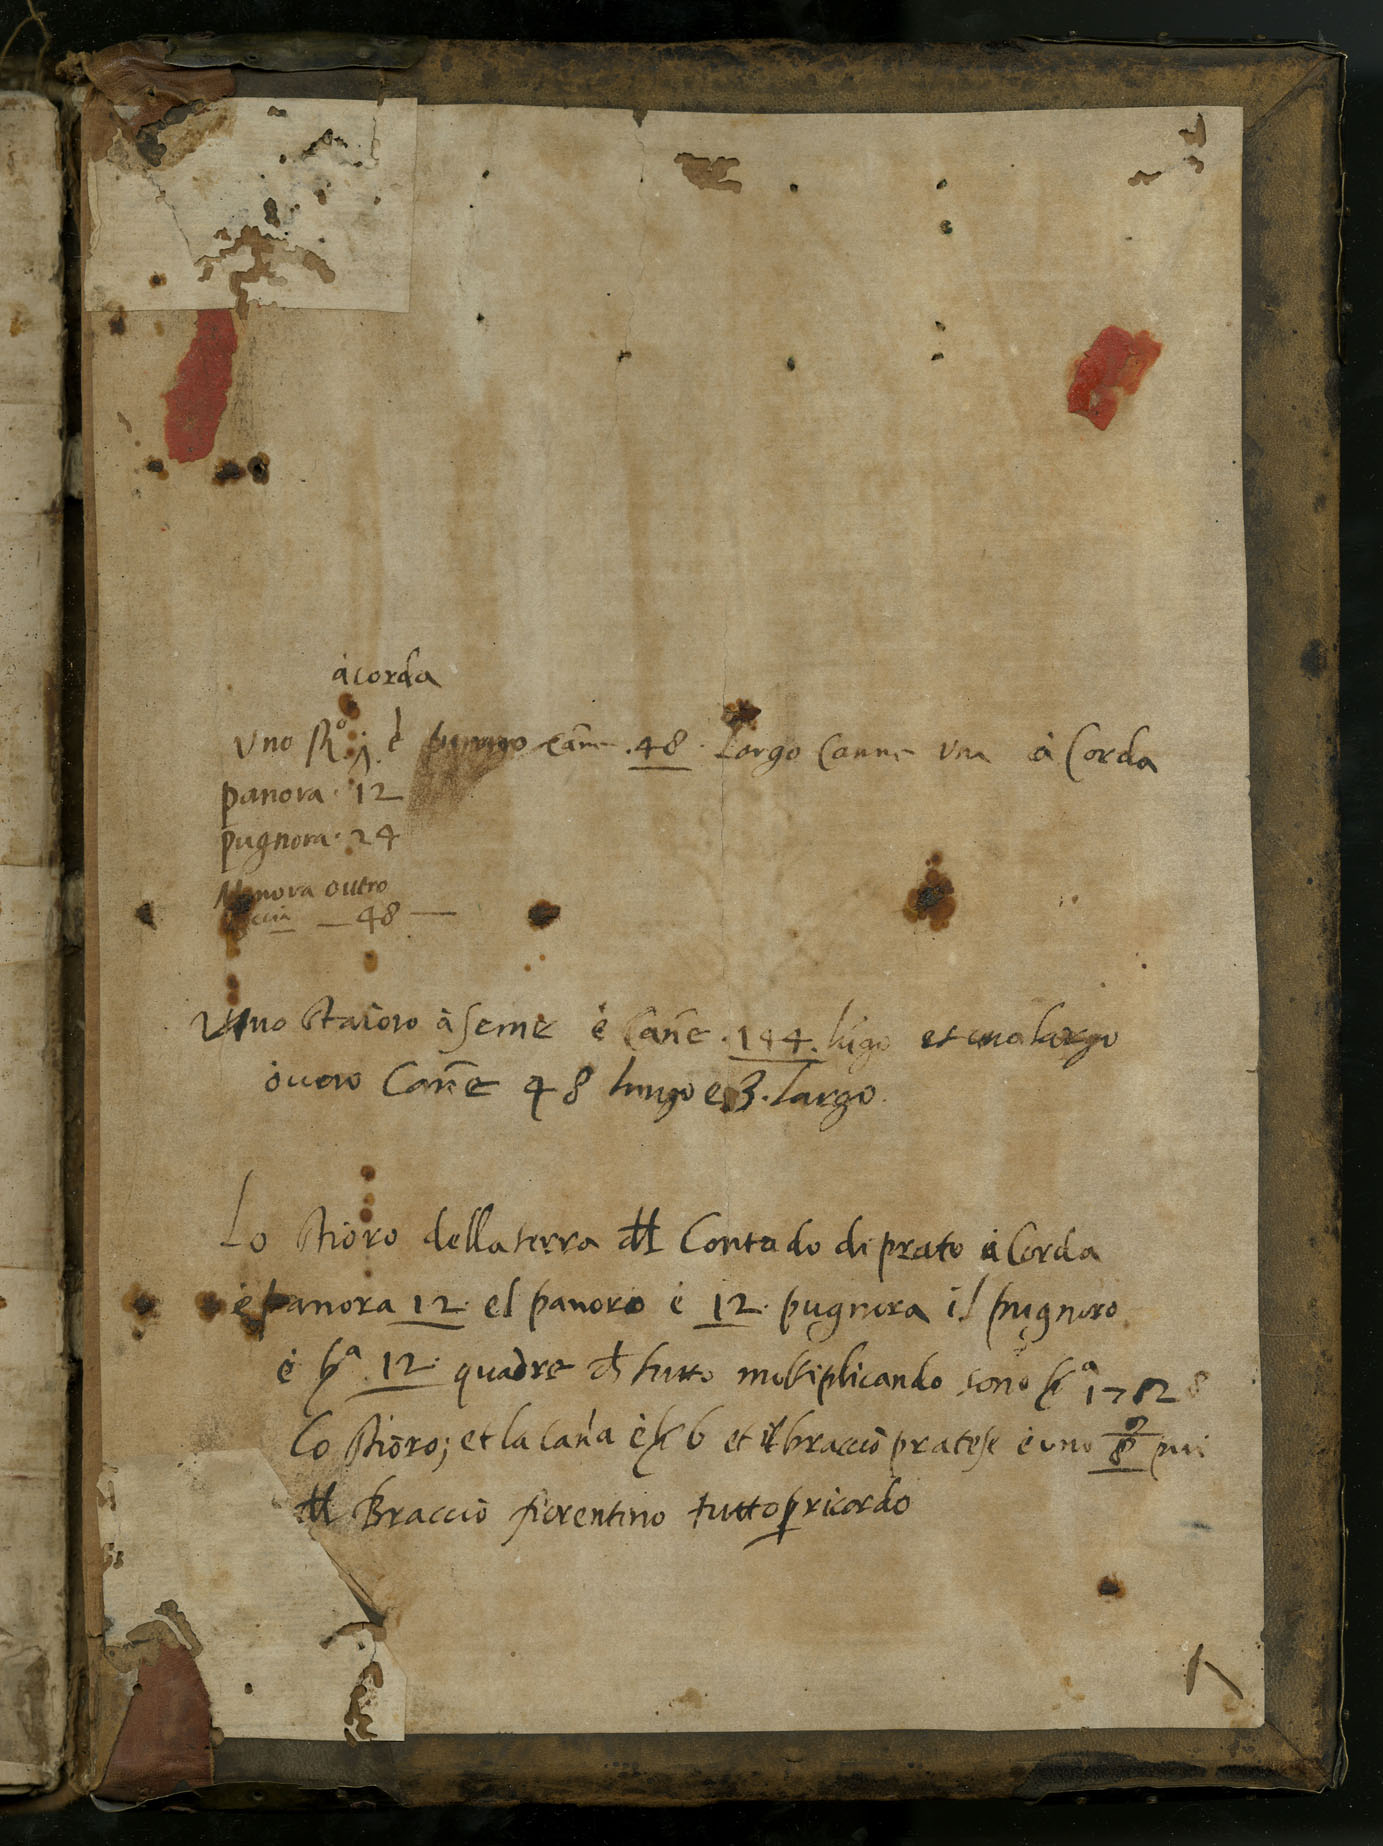 à corda
Uno st.º j. è lungo cane .48. Largo Canne una à Corda
panora . 12
pugnora . 24
ovtro
— 48 —
Uno staioro à seme è Cane . 144 . lugo et uno largo
overo Cane 48 lungo e 3. largo.
Lo stioro della terra del Contado di prato à Corda
è panora 12. el panoro è 12. pugnora il pugnoro
è bª 12. quadre ch tutto multiplicando sono bª 1728
lo stioro; et la cana è b 6 et il braccio pratese è uno piu
del Braccio fiorentino tutto p ricordo